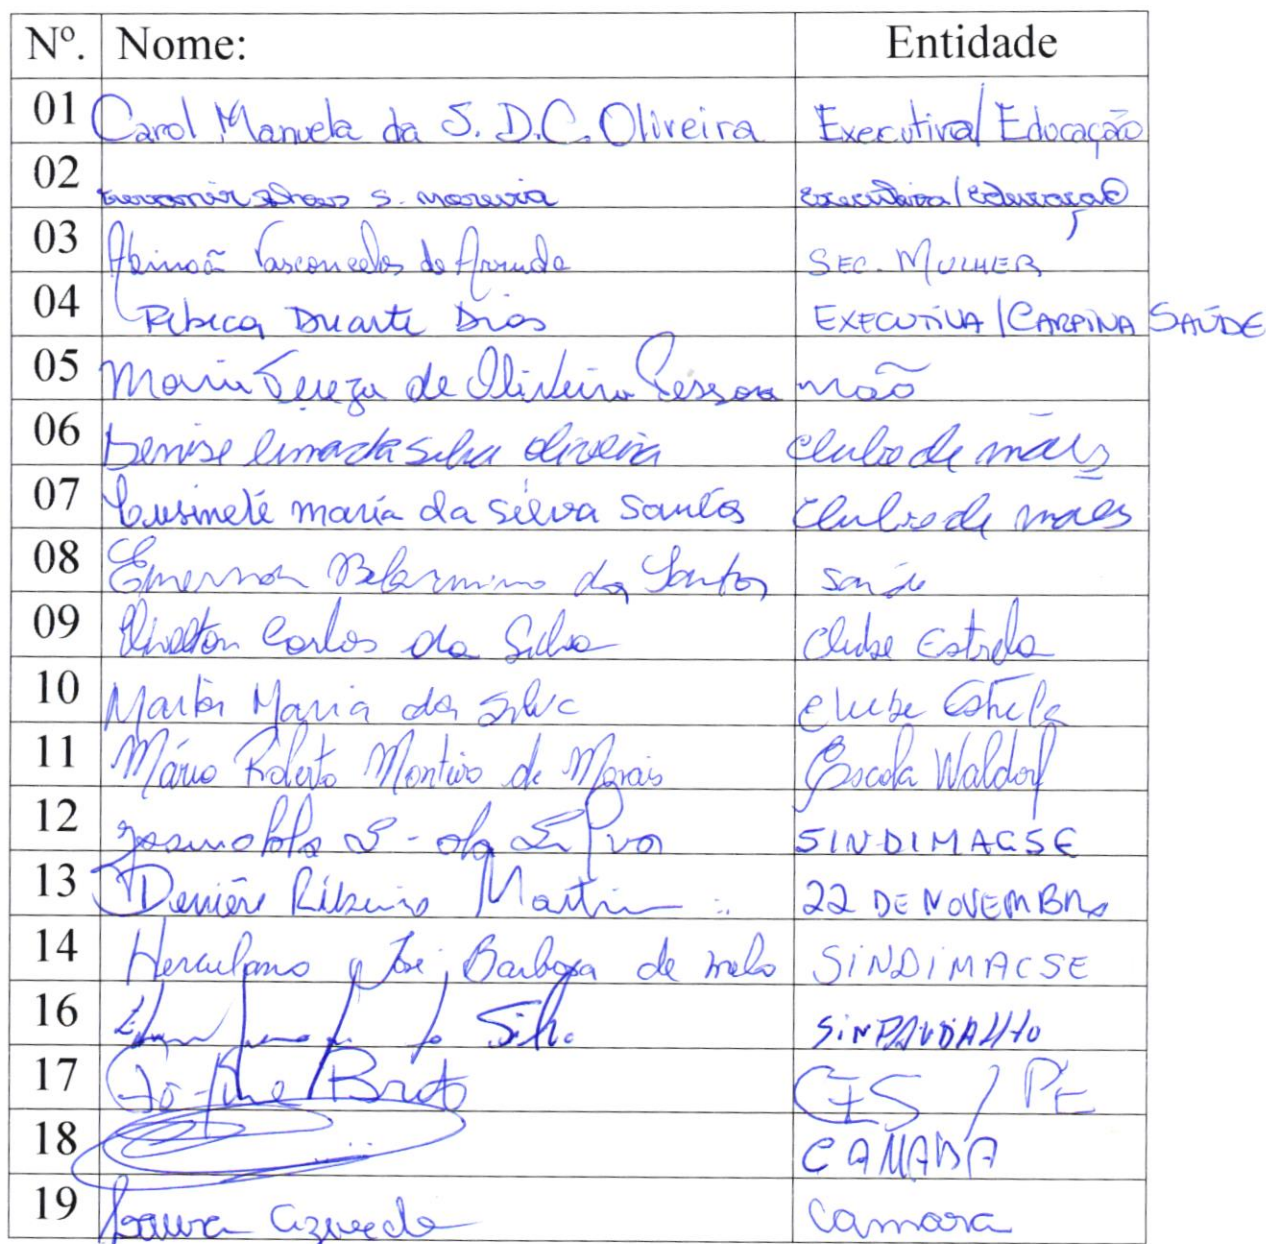 Nº. Nome: Entidade
01 Carol Manuela da S. D.C. Oliveira Executiva/Educação
02 S. moreira executiva/educação
03 Abimoã Vasconcelos de Arruda SEC. MULHER
04 Rebeca Duarte Dias EXECUTIVA/CARPINA SAÚDE
05 Maria Tereza de Oliveira Pessoa não
06 Denise Lima da Silva Oliveira Clube de mães
07 Lusinete maria da silva santos Clube de mães
08 Emerson Belarmino dos Santos saúde
09 Carlos da Silva Clube Estrela
10 Marta Maria da Silva clube Estrela
11 Mário Roberto Monteiro de Morais Escola Waldorf
12 S. da Silva SINDIMACSE
13 Ribeiro Martin 22 DE NOVEMBRO
14 Herculano José Barbosa de melo SINDIMACSE
16 Silva
17 Brito CES / PE
18
19 Laura Azevedo Camara